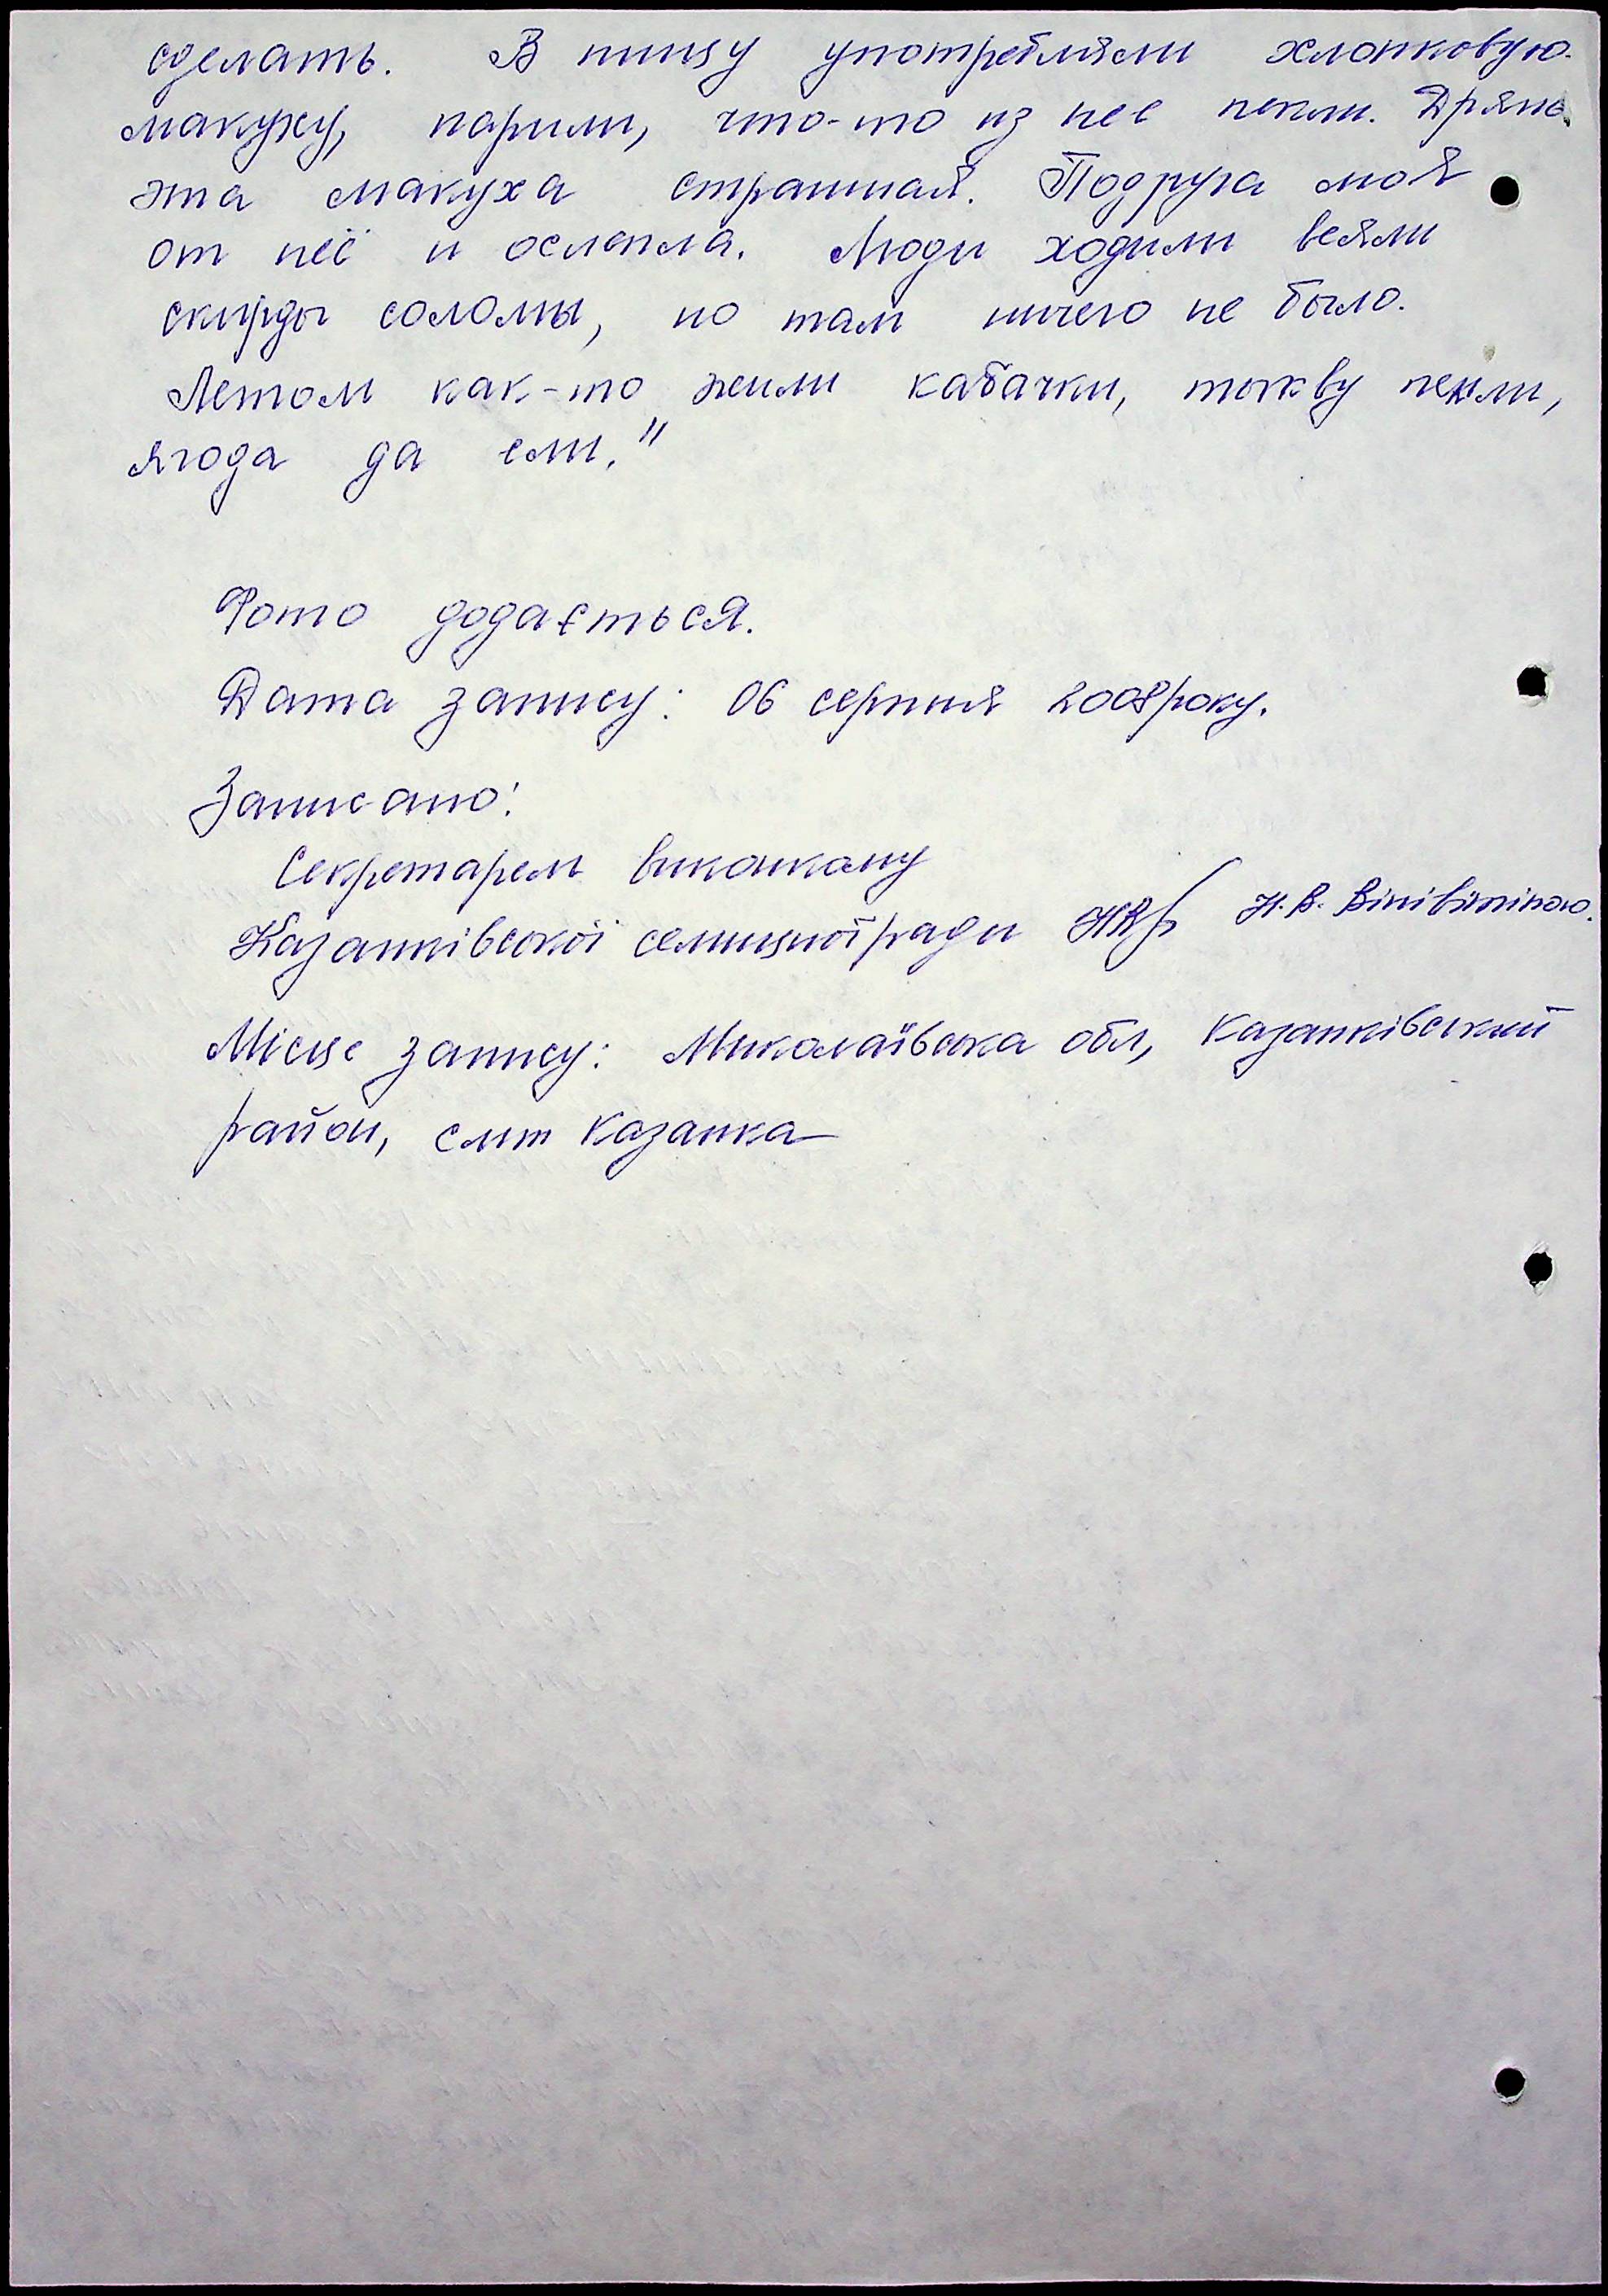 сделать. В пищу употребляли хлопковую
макуху, парили, что-то из нее пекли. Дрянь
эта макуха страшная. Подруга моя
от неё и ослепла. Люди ходили веяли
скирды соломы, но там ничего не было.
Летом как-то жили кабачки, тыкву пекли,
ягода да ели."
Фото додається.
Дата запису: 06 серпня 2008 року.
Записано:
Секретарем виконкому
Казанківської селищної ради Н.В.
Місце запису: Миколаївська обл, Казанківський
район, смт Казанка